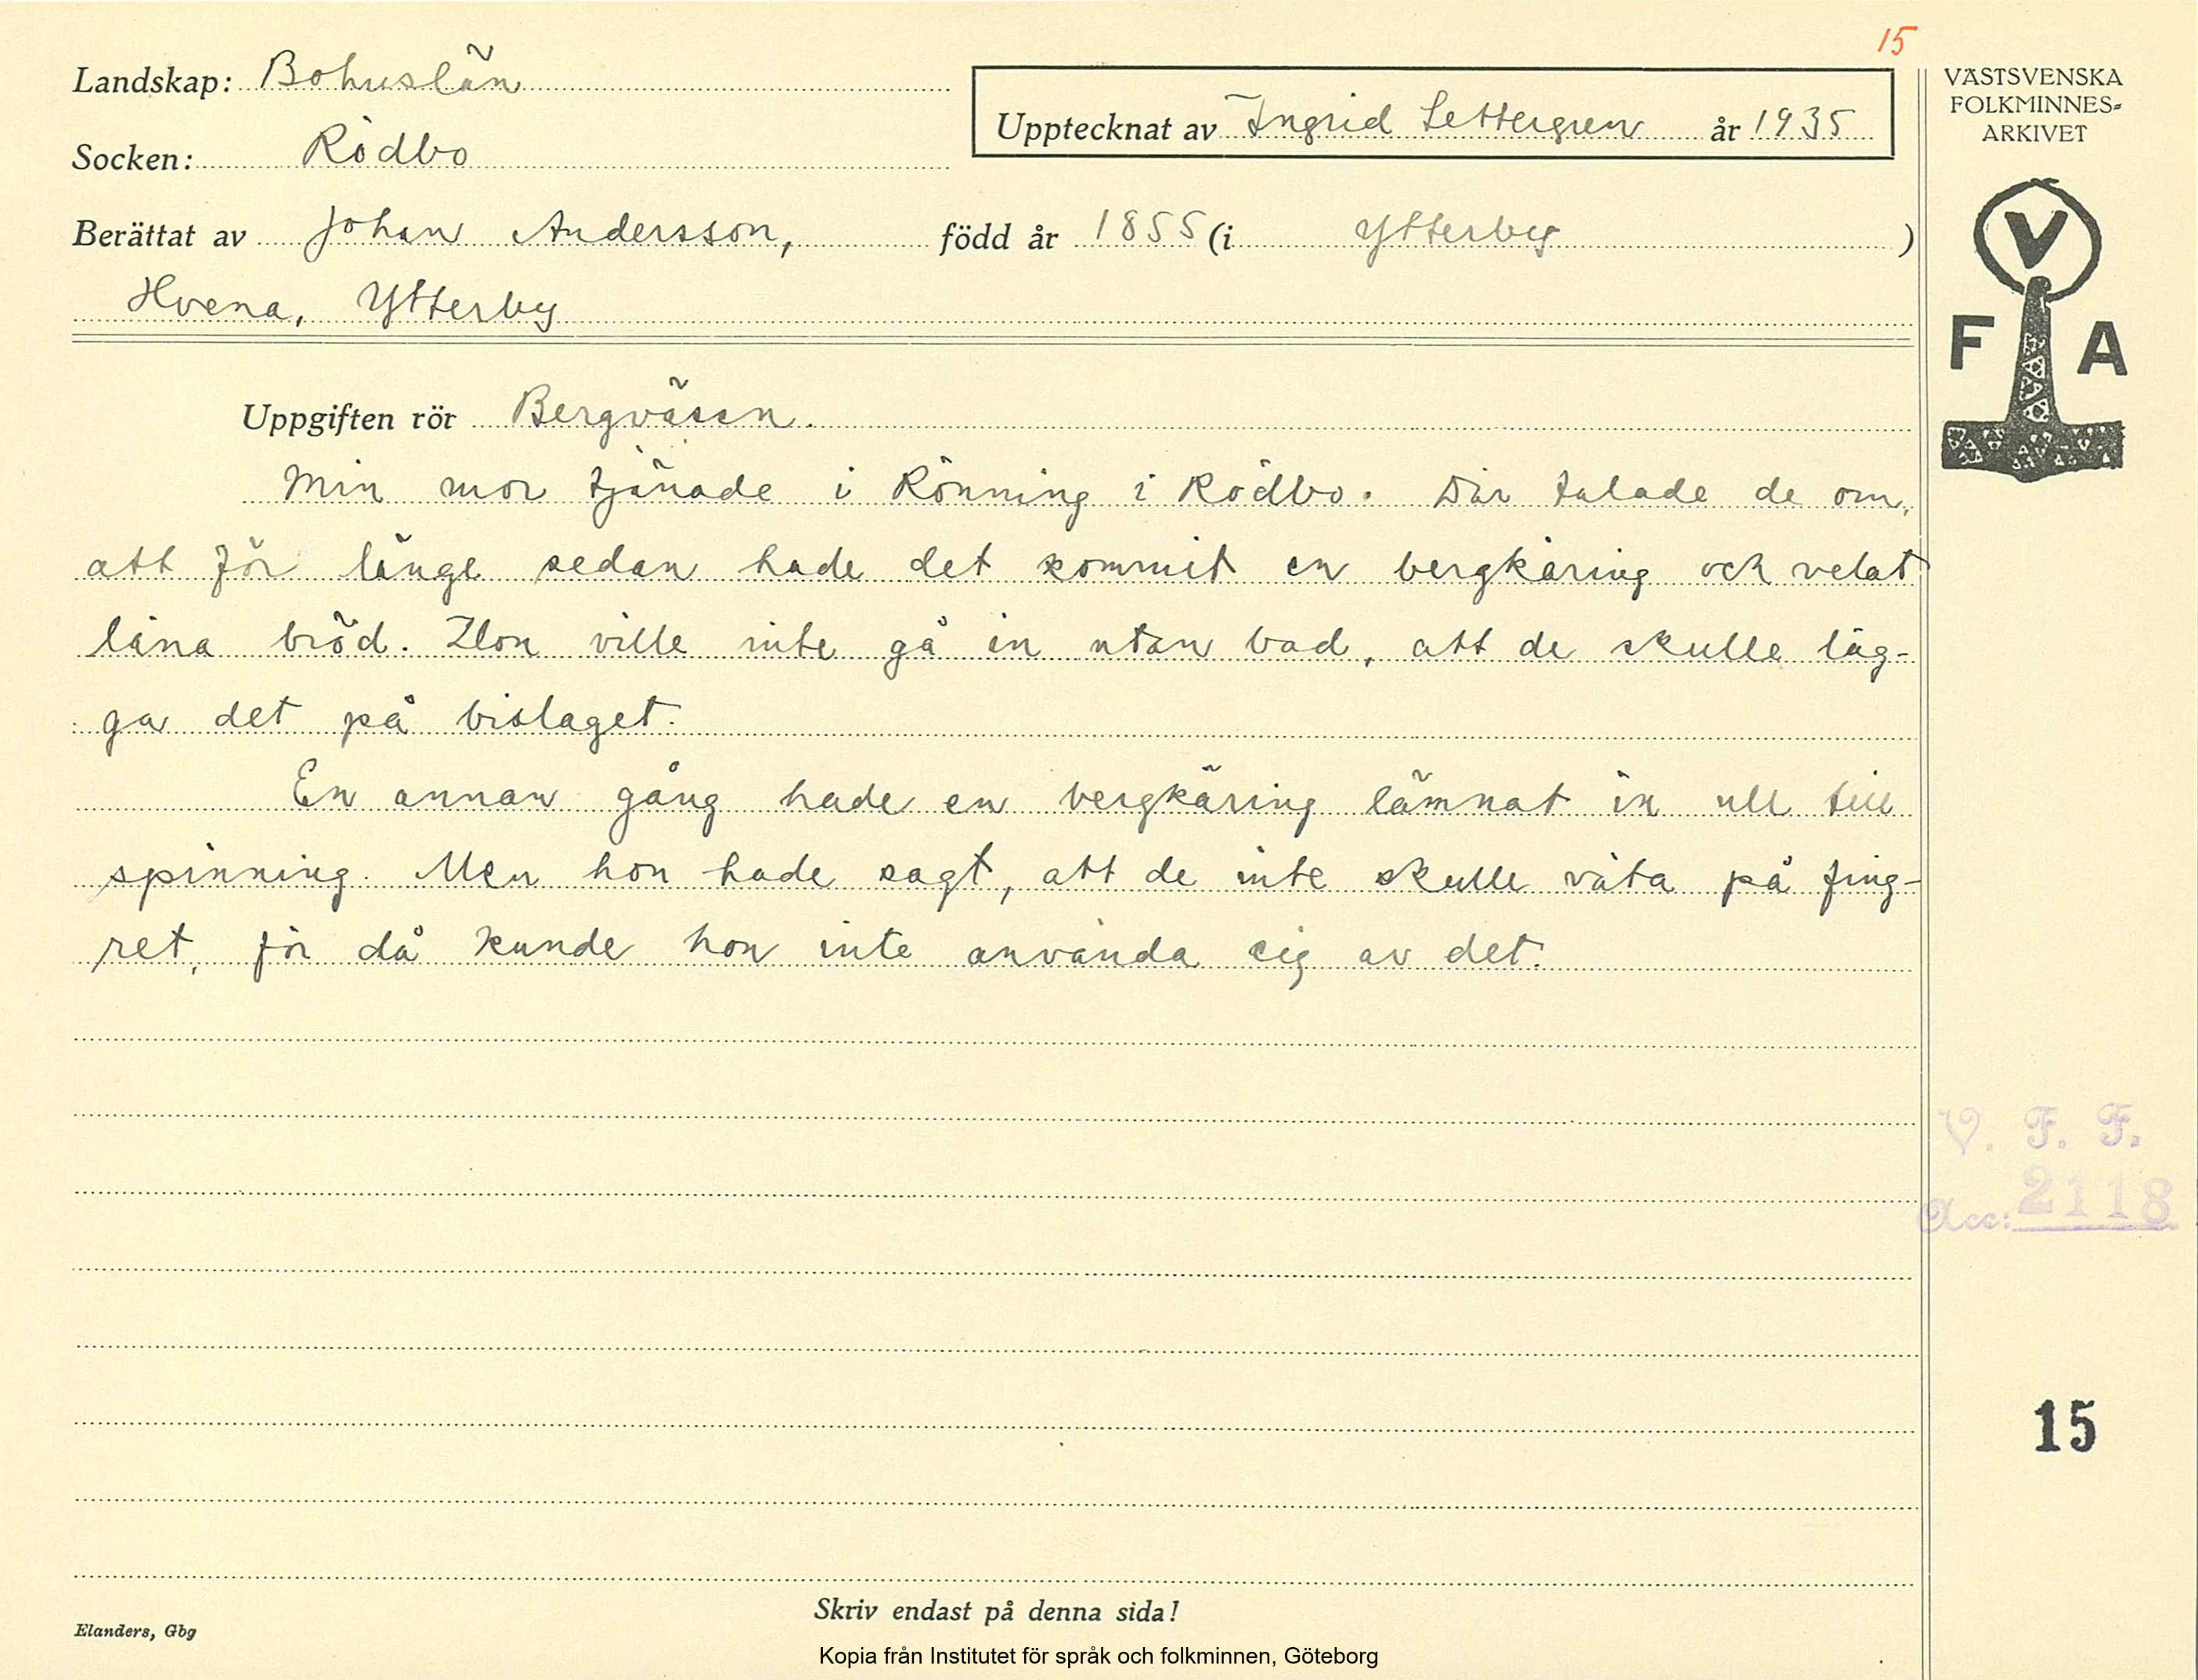 15
Landskap: Bohuslän
Socken: Rödbo
Upptecknat av Ingrid Settergren år 1935
Berättat av Johan Andersson, född år 1855 (i Ytterby)
Hvena, Ytterby
VÄSTSVENSKA
FOLKMINNES-
ARKIVET
V
F A
Uppgiften rör Bergväsen.
Min mor tjänade i Rönning i Rödbo. Där talade de om,
att för länge sedan hade det kommit en bergkäring och velat
låna bröd. Hon ville inte gå in utan bad, att de skulle läg-
ga det på bislaget.
En annan gång hade en bergkäring lämnat in ull till
spinning. Men hon hade sagt, att de inte skulle väta på fing-
ret, för då kunde hon inte använda sig av det.
V. F. F.
Acc: 2118
15
Skriv endast på denna sida!
Elanders, Gbg
Kopia från Institutet för språk och folkminnen, Göteborg